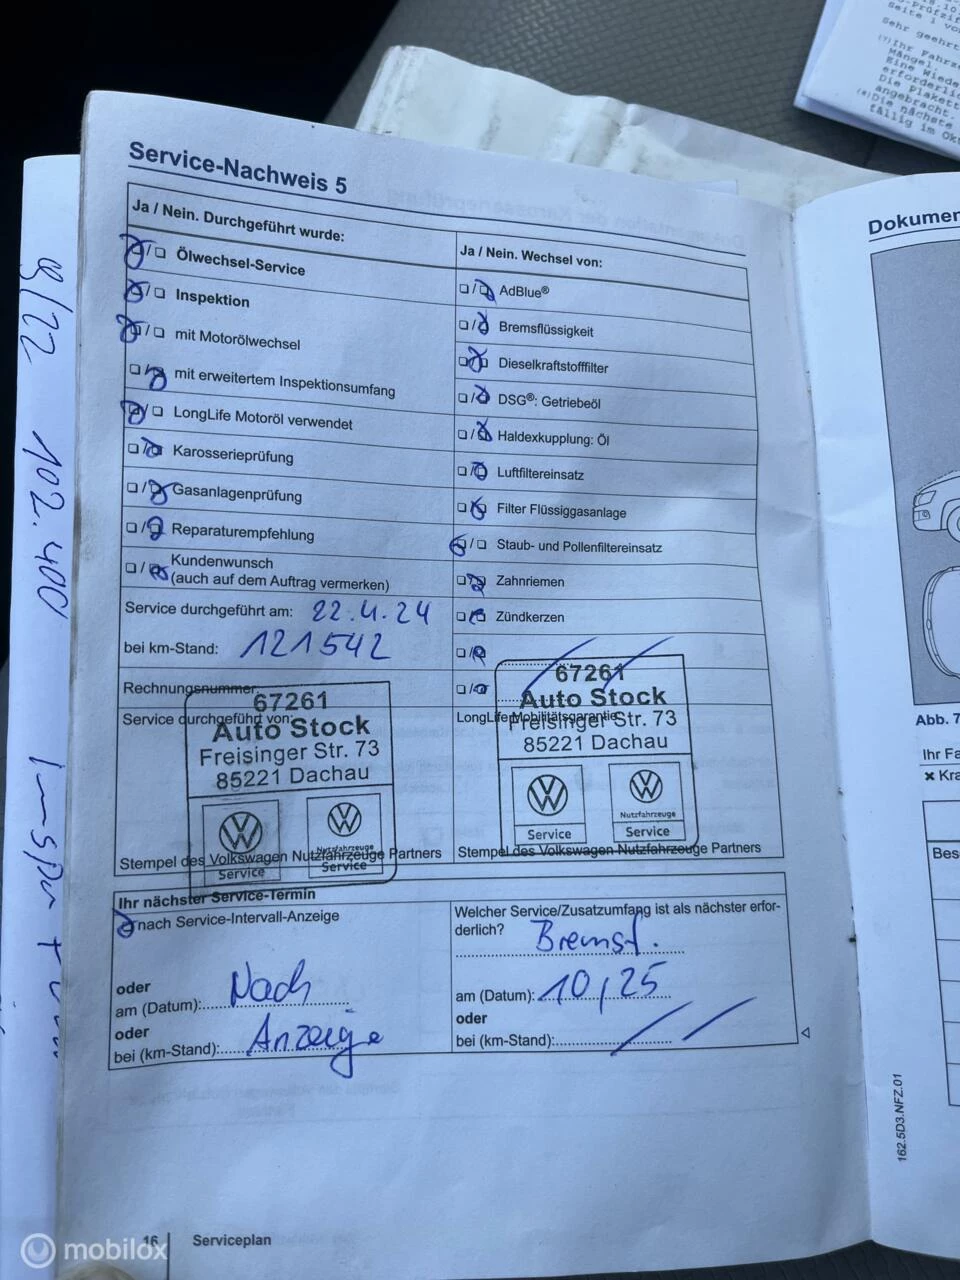 Service-Nachweis 5
Ja / Nein. Durchgeführt wurde:
Ölwechsel-Service
Inspektion
mit Motorölwechsel
mit erweitertem Inspektionsumfang
LongLife Motoröl verwendet
Karosserieprüfung
Gasanlagenprüfung
Reparaturempfehlung
Kundenwunsch
(auch auf dem Auftrag vermerken)
Service durchgeführt am: 22.4.24
bei km-Stand: 121542
Rechnungsnummer:
Service durchgeführt von:
67261
Auto Stock
Freisinger Str. 73
85221 Dachau
Nutzfahrzeuge
Service
Service
Stempel des Volkswagen Nutzfahrzeuge Partners
Ja / Nein. Wechsel von:
AdBlue®
Bremsflüssigkeit
Dieselkraftstofffilter
DSG®: Getriebeöl
Haldexkupplung: Öl
Luftfiltereinsatz
Filter Flüssiggasanlage
Staub- und Pollenfiltereinsatz
Zahnriemen
Zündkerzen
LongLife Mobilitätsgarantie
67261
Auto Stock
Freisinger Str. 73
85221 Dachau
Nutzfahrzeuge
Service
Service
Stempel des Volkswagen Nutzfahrzeuge Partners
Ihr nächster Service-Termin
nach Service-Intervall-Anzeige
oder
am (Datum): Nach
oder
bei (km-Stand): Anzeige
Welcher Service/Zusatzumfang ist als nächster erfor-
derlich? Bremsf.
am (Datum): 10/25
oder
bei (km-Stand):
16
Serviceplan
162.5D3.NFZ.01
Dokumen
Abb. 7
Ihr Fa
Kra
Bes
8/22 102.400
Seite 1 vo
Sehr geehrt
Ihr Fahrze
Mängel.
Eine Wiede
erforderlic
Die Plakett
angebracht.
Die nächste
fällig im Okt
mobilox